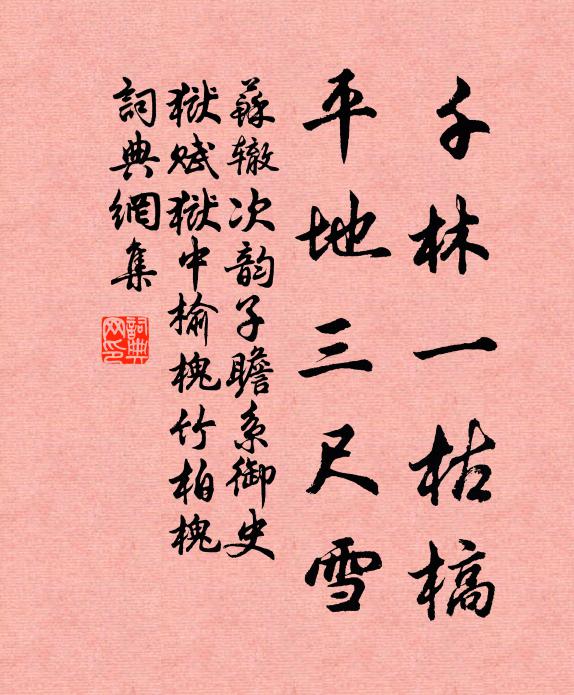 千林一枯槁
平地三尺雪
蘇辙次韵子瞻系御史
獄赋獄中榆槐竹柏槐
詞典網集
詞典网印